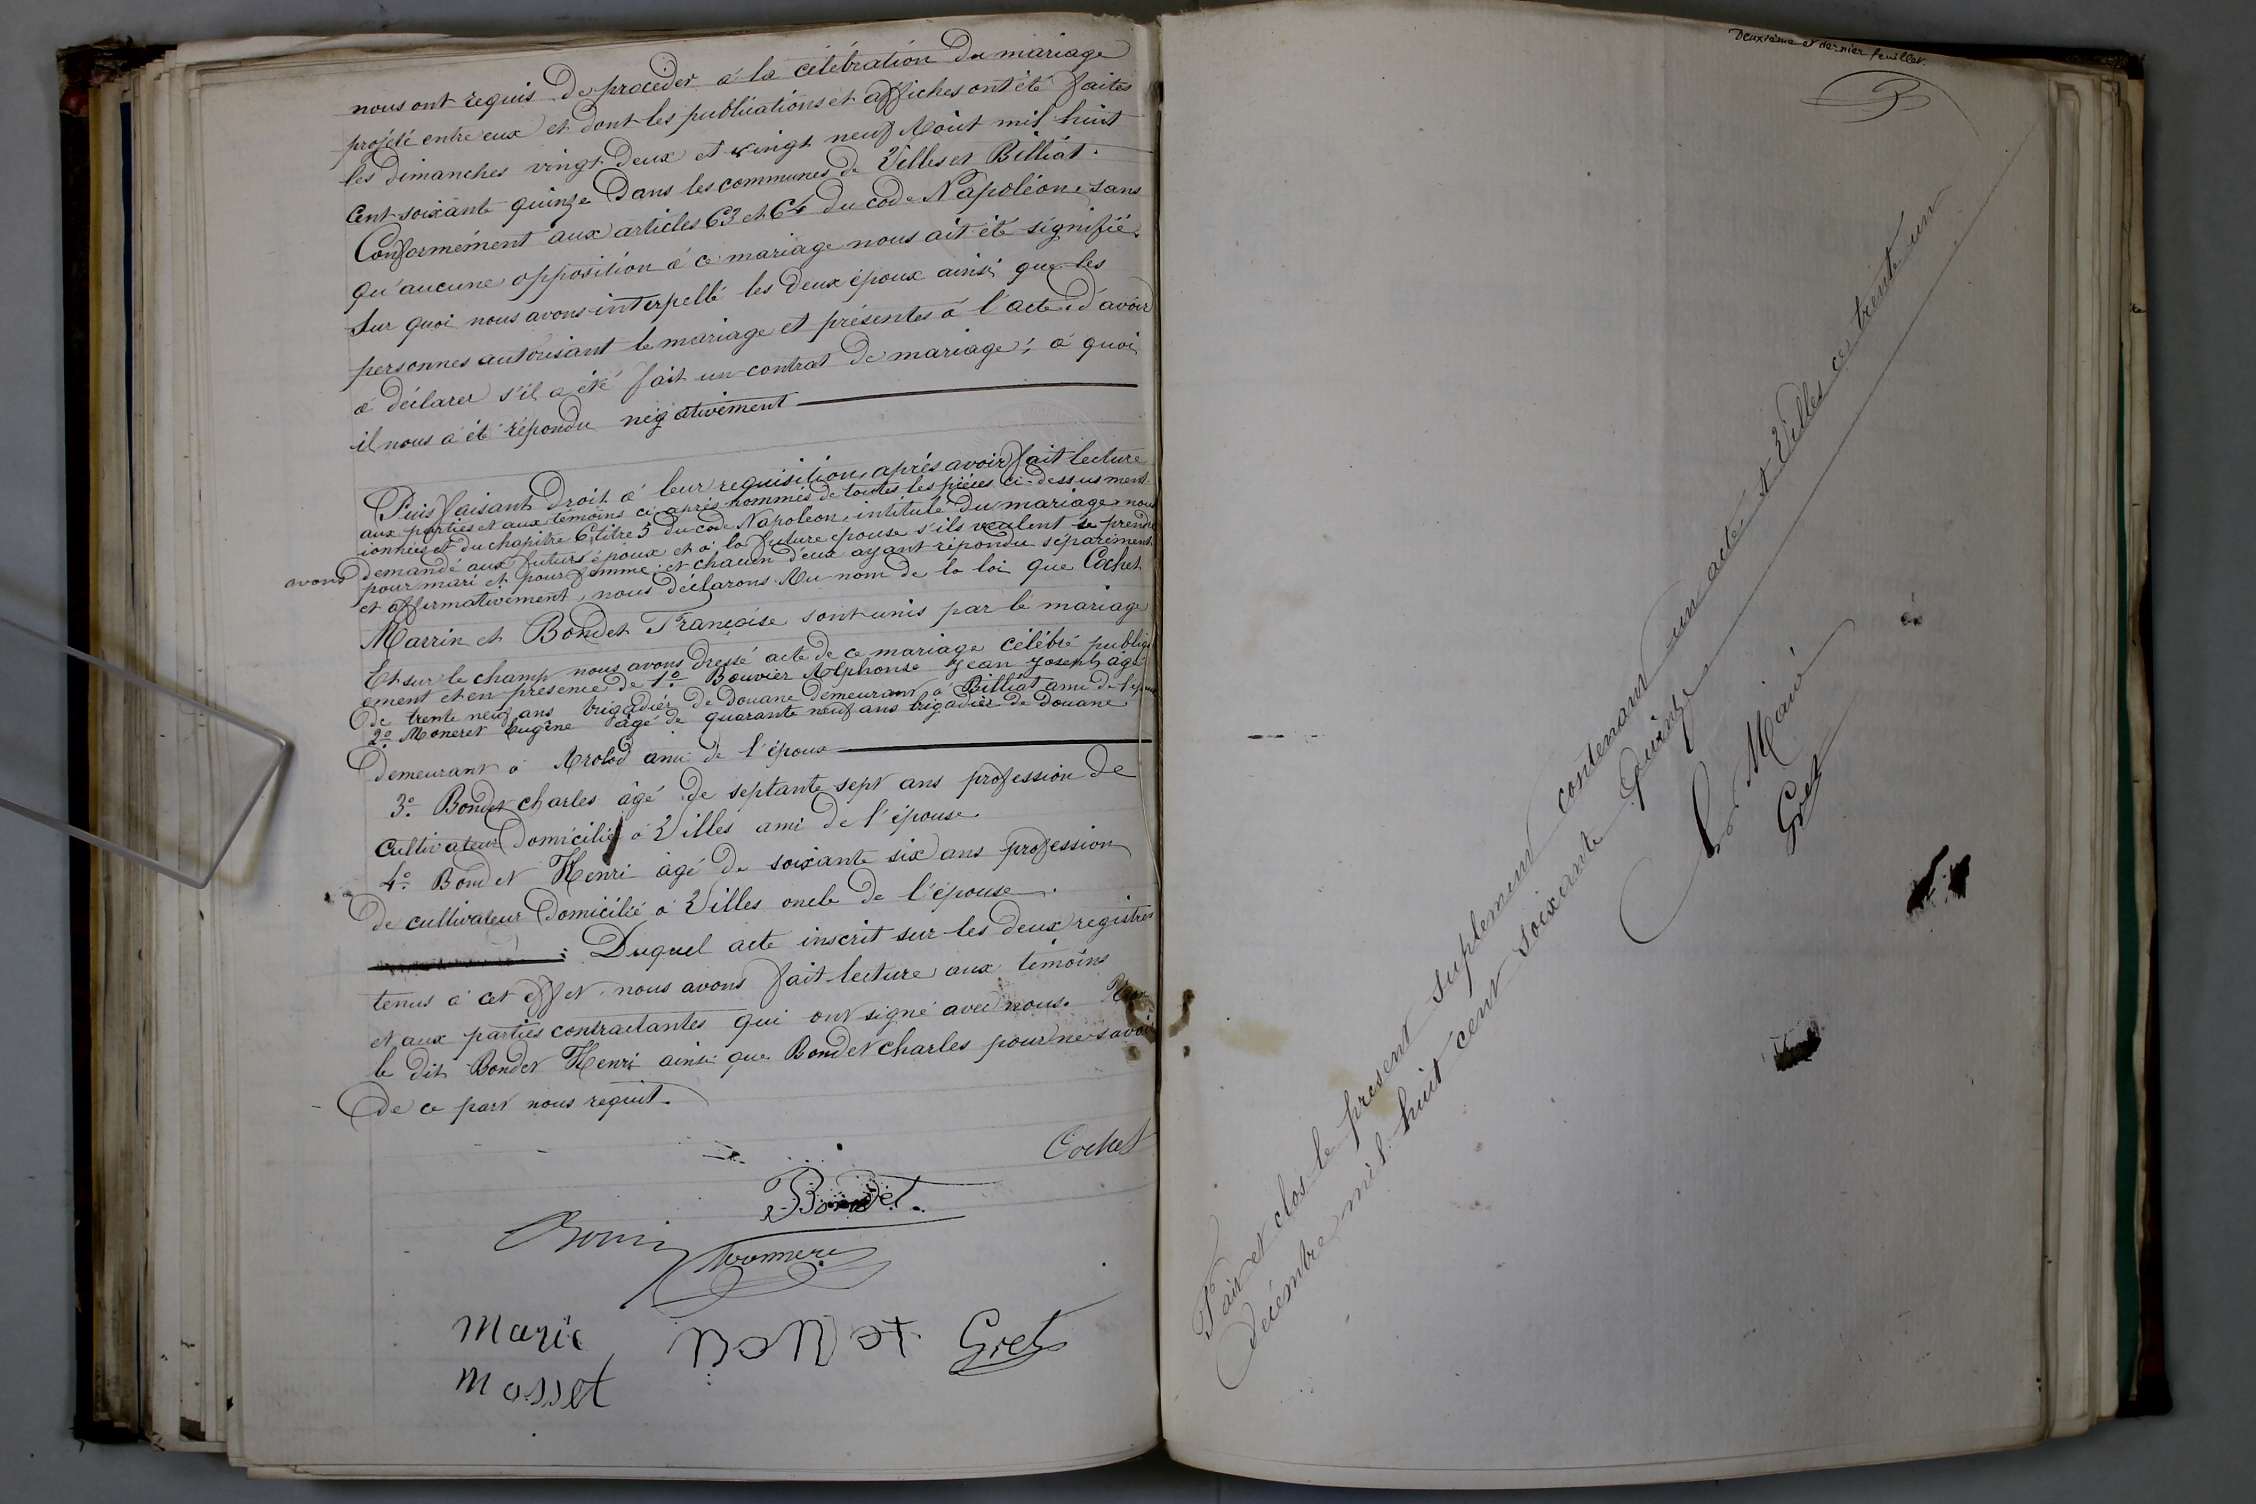 nous ont requis de procéder à la célébration du mariage
projeté entre eux et dont les publications et affiches ont été faites
les dimanches vingt deux et vingt neuf Août mil huit
Cent soixante quinze dans les communes de Villes et Billiat.
Conformément aux articles 63 et 64 du code Napoléon, sans
qu'aucune opposition à ce mariage nous ait été signifiée.
Sur quoi nous avons interpellé les deux époux ainsi que les
personnes autorisant le mariage et présentes à l'acte, d'avoir
à déclarer s'il a été fait un contrat de mariage; à quoi
il nous a été répondu négativement
Puis faisant droit à leur requisition, après avoir fait lecture
aux parties et aux témoins ci après nommés de toutes les pièces ci-dessus ment
ionnées et du chapitre 6 titre 5 du code Napoléon, intitulé du mariage nous
avons demandé aux futurs époux et à la future épouse s'ils veulent se prendre
pour mari et pour femme; et chacun d'eux ayant répondu séparément
et affirmativement, nous déclarons Au nom de la loi que Cochet
Marrin et Bondet Françoise sont unis par le mariage
Et sur le champ nous avons dressé acte de ce mariage célébré publiqu
ement et en présence de 1º Bouvier Alphonse Jean Joseph âgé
de trente neuf ans brigadier de douane demeurant à Billiat ami de l'époux
2º Moneret Eugène âgé de quarante neuf ans brigadier de douane
demeurant à Arolod ami de l'époux
3º Bondet charles âgé de septante sept ans profession de
cultivateur domicilié à Villes ami de l'épouse
4º Bondet Henri âgé de soixante six ans profession
de cultivateur domicilié à Villes oncle de l'épouse.
: Duquel acte inscrit sur les deux registres
tenus à cet effet nous avons fait lecture aux témoins
et aux parties contractantes qui ont signé avec nous.
le dit Bondet Henri ainsi que Bondet charles pour ne savoir
de ce part nous requit.
Cochet
Bondet.
Marie
Bondet
Gret
Mosset
Deuxième et dernier feuillet.
Fait et clos le présent suplement contenant un acte à Villes ce trente un
décembre mil huit cent soixante quinze
Le Maire
Gret